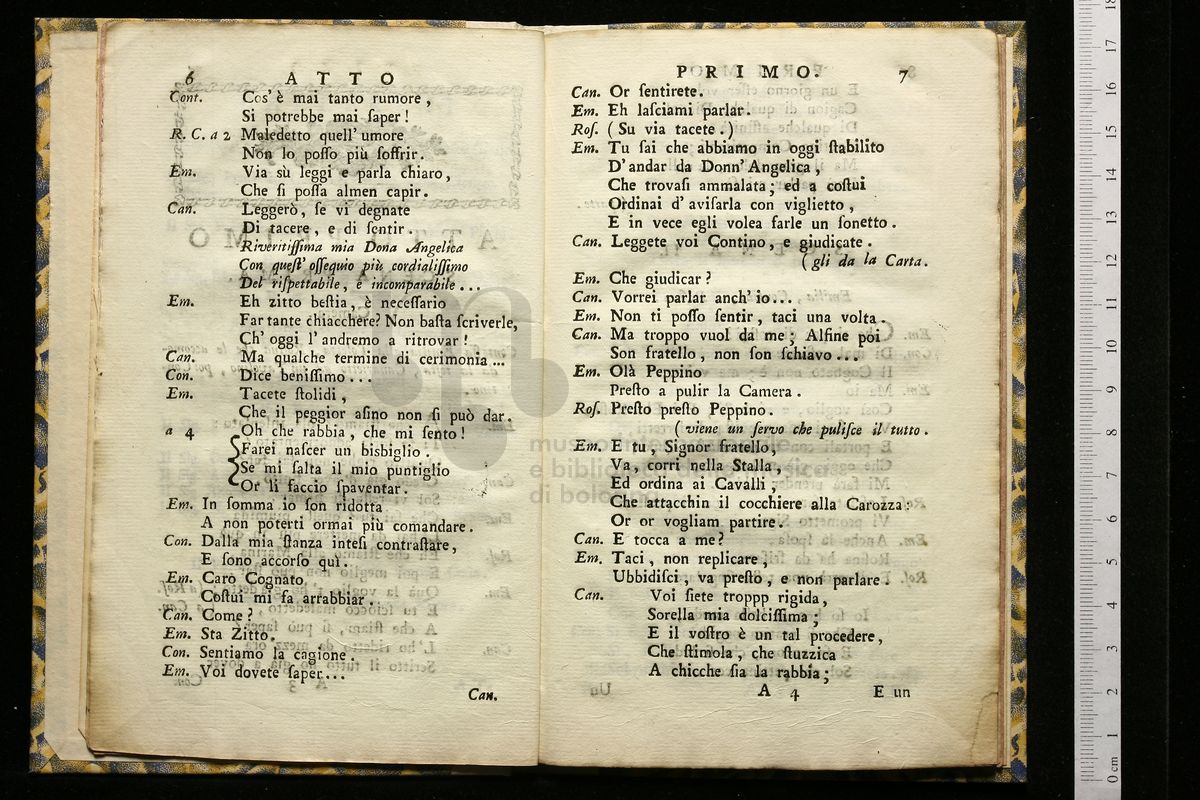 6 ATTO
Cont. Cos' è mai tanto rumore,
Si potrebbe mai ſaper!
R. C. a 2 Maledetto quell' umore
Non lo poſſo più ſoffrir.
Em. Via sù leggi e parla chiaro,
Che ſi poſſa almen capir.
Can. Leggerò, ſe vi degnate
Di tacere, e di ſentir.
Riveritiſſima mia Dona Angelica
Con queſt' oſſequio più cordialiſſimo
Del riſpettabile, e incomparabile...
Em. Eh zitto beſtia, è neceſſario
Far tante chiacchere? Non baſta ſcriverle,
Ch' oggi l' andremo a ritrovar!
Can. Ma qualche termine di cerimonia...
Con. Dice beniſſimo...
Em. Tacete ſtolidi,
Che il peggior aſino non ſi può dar.
a 4 Oh che rabbia, che mi ſento!
Farei naſcer un bisbiglio.
Se mi ſalta il mio puntiglio
Or li faccio ſpaventar.
Em. In ſomma io ſon ridotta
A non poterti ormai più comandare.
Con. Dalla mia ſtanza inteſi contraſtare,
E ſono accorſo quì.
Em. Caro Cognato
Coſtui mi fa arrabbiar..
Can. Come?
Em. Sta Zitto.
Con. Sentiamo la cagione.
Em. Voi dovete ſaper...
Can.
PRIMO. 7
Can. Or ſentirete.
Em. Eh laſciami parlar.
Roſ. (Su via tacete.)
Em. Tu ſai che abbiamo in oggi ſtabilito
D' andar da Donn' Angelica,
Che trovaſi ammalata; ed a coſtui
Ordinai d' aviſarla con viglietto,
E in vece egli volea farle un ſonetto.
Can. Leggete voi Contino, e giudicate.
(gli da la Carta.
Em. Che giudicar?
Can. Vorrei parlar anch' io...
Em. Non ti poſſo ſentir, taci una volta.
Can. Ma troppo vuol da me; Alfine poi
Son fratello, non ſon ſchiavo...
Em. Olà Peppino
Preſto a pulir la Camera.
Roſ. Preſto preſto Peppino.
(viene un ſervo che puliſce il tutto.
Em. E tu, Signor fratello,
Va, corri nella Stalla,
Ed ordina ai Cavalli,
Che attacchin il cocchiere alla Carozza:
Or or vogliam partire.
Can. E tocca a me?
Em. Taci, non replicare,
Ubbidiſci, va preſto, e non parlare.
Can. Voi ſiete troppp rigida,
Sorella mia dolciſſima;
E il voſtro è un tal procedere,
Che ſtimola, che ſtuzzica
A chicche ſia la rabbia;
A 4 E un